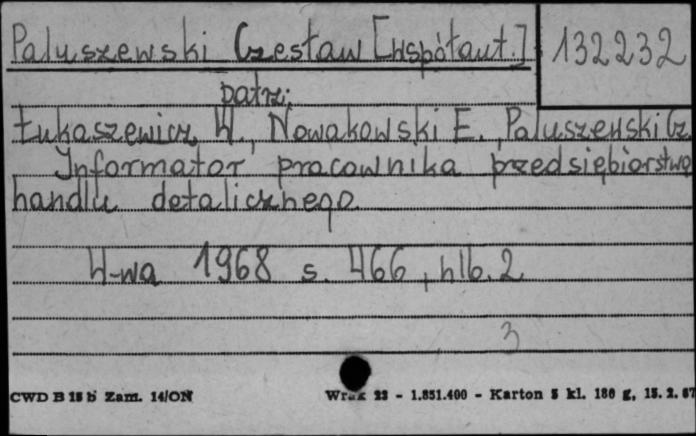 Paluszewski Czesław [współaut.] 132232
patrz:
Łukaszewicz W., Nowakowski E., Paluszewski Cz.
Informator pracownika przedsiębiorstwa
handlu detalicznego
W-wa 1968 s. 466, nlb. 2
3
CWD B 18 b Zam. 14/ON - 1.851.400 - Karton 5 kl. 180 g, 15. 2. 67